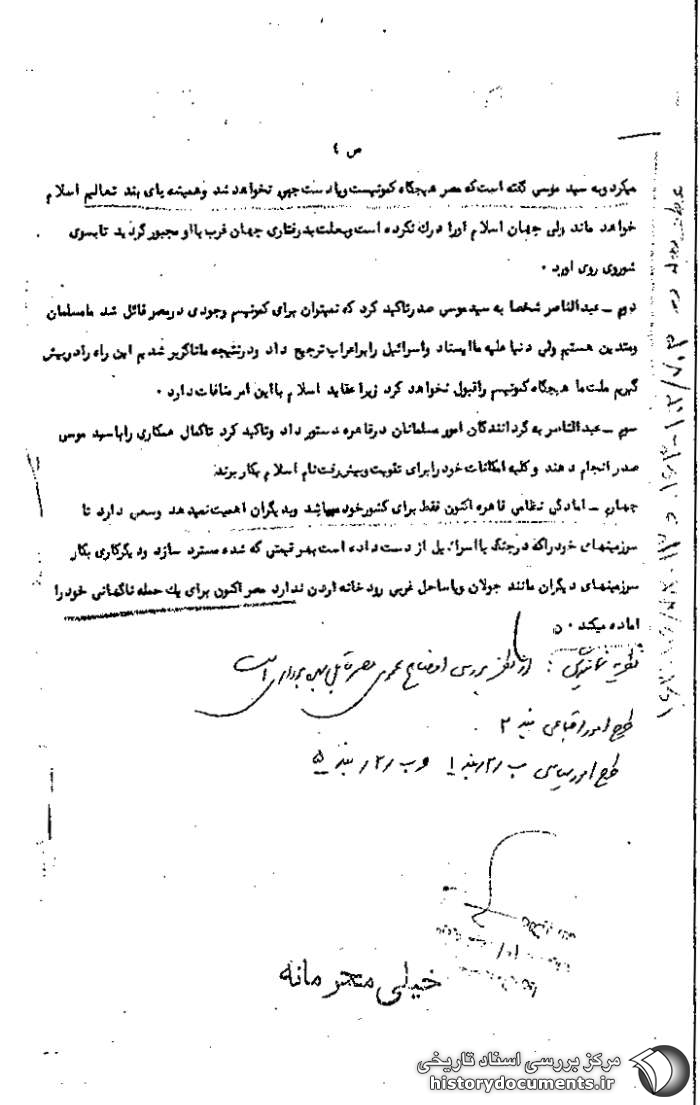 ص ٤
میکرد وبه سید موسی گفته است که مصر هیجگاه کمونیست ویا دست جپی نخواهد شد وهمیشه پای بند تعالیم اسلام
خواهد ماند ولی جهان اسلام اورا درك نکرده است وبعلت بدرفتاری جهان غرب با او مجبور گردید تابسوی
شوروی روی اورد ٠
دوم – عبدالناصر شخصا به سید موسی صدر تاکید کرد که نمیتوان برای کمونیسم وجودی در مصر قائل شد ما مسلمان
ومتدین هستیم ولی دنیا علیه ما ایستاد واسرائیل را بر اعراب ترجیح داد ودر نتیجه ما ناگزیر شدیم این راه را در پیش
گیریم ملت ما هیجگاه کمونیسم را قبول نخواهد کرد زیرا عقاید اسلام با این امر منافات دارد ٠
سوم – عبدالناصر به گردانندگان امور مسلمانان در قاهره دستور داد وتاکید کرد تا کمال همکاری را با سید موسی
صدر انجام دهند وکلیه امکانات خود را برای تقویت وپیش رفت نام اسلام بکار برند
چهارم – امادگی نظامی قاهره اکنون فقط برای کشور خود میباشد وبدیگران اهمیت نمیدهد وسعی دارد تا
سرزمینهای خود را که در جنگ با اسرائیل از دست داده است بهر قیمتی که شده مسترد سازد ودیگر کاری بکار
سرزمینهای دیگران مانند جولان ویا ساحل غربی رودخانه اردن ندارد مصر اکنون برای یك حمله ناگهانی خود را
اماده میکند ٠
نظریه نمایندگی : از نظر بررسی اوضاع عمومی مصر قابل بهره برداری است
طرح امور اجتماعی بند ٢
طرح امور سیاسی ب /٢/ بند ١ و ب /٢/ بند ٥
خیلی محرمانه
مرکز بررسی اسناد تاریخی
historydocuments.ir